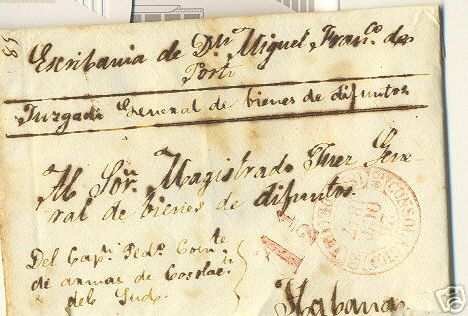 Escribania de Dn. Miguel Franco. de
Porto
Juzgado General de bienes de difuntos
Al Sor. Magistrado Juez Gene-
ral de bienes de difuntos.
Del Capn. Pedo.
de armas de
del Sud.
Habana